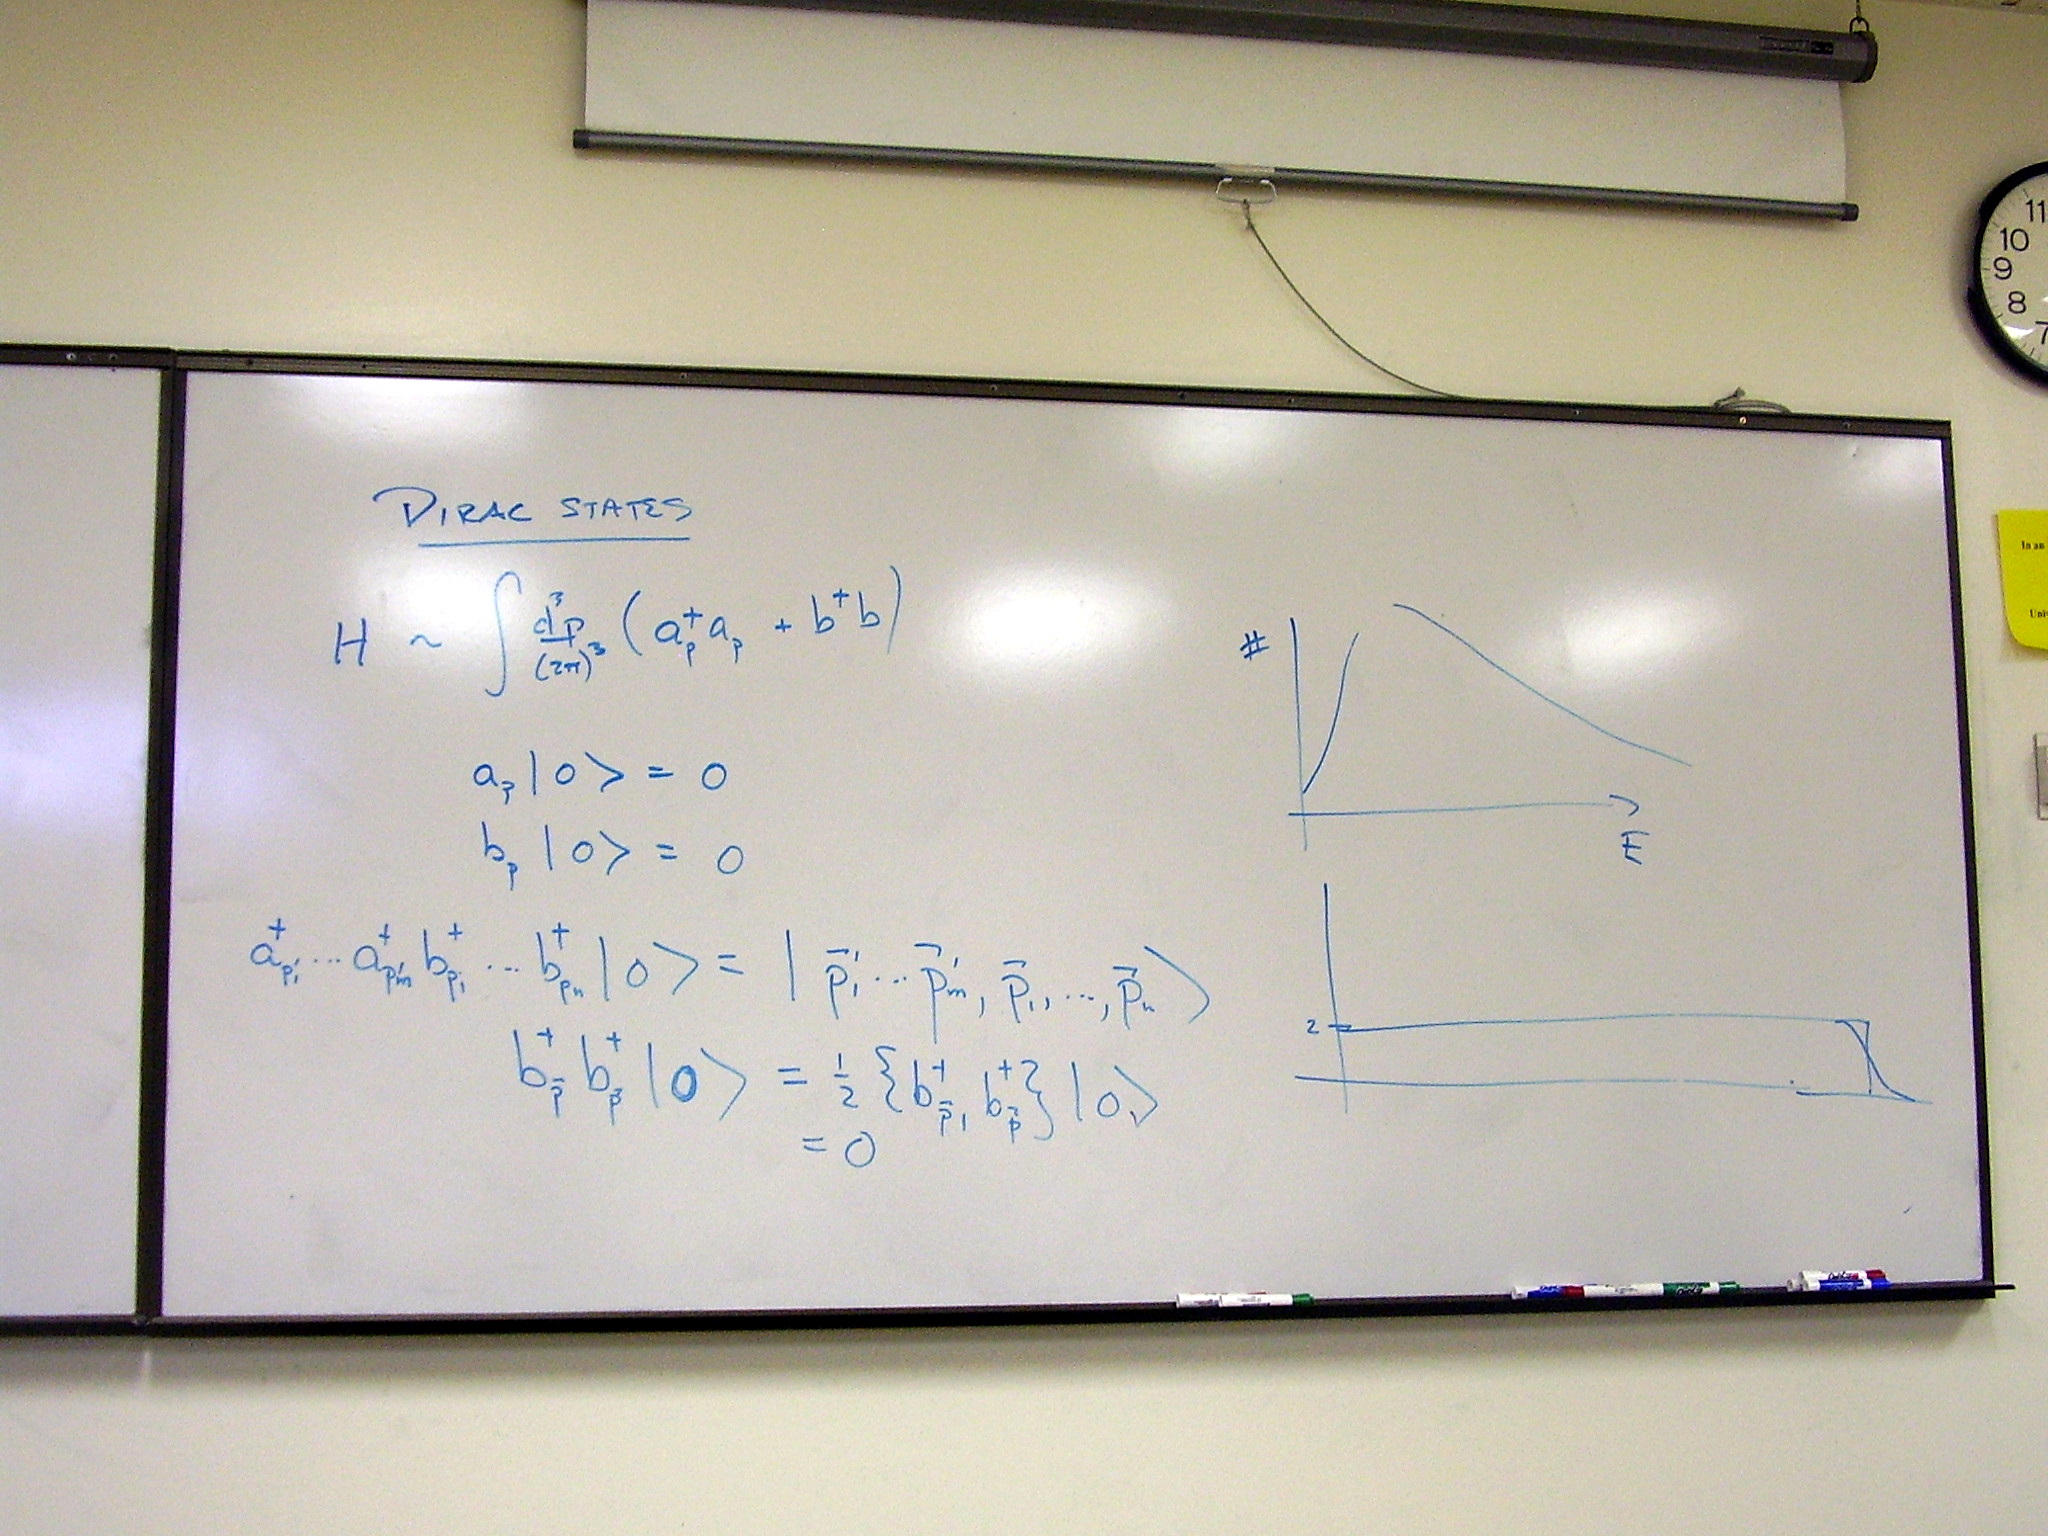 DIRAC STATES
H ~ ∫ d³p/(2π)³ (a†ₚ aₚ + b†b)
aₚ|0> = 0
bₚ|0> = 0
a†_{p'₁} ... a†_{p'm} b†_{p₁} ... b†_{pn} |0> = | p⃗'₁ ... p⃗'m, p⃗₁, ..., p⃗n >
b†_{p⃗} b†_{p⃗} |0> = ½ {b†_{p⃗}, b†_{p⃗}} |0>
= 0
#
E
2
11
10
9
8
7
In an
Univ